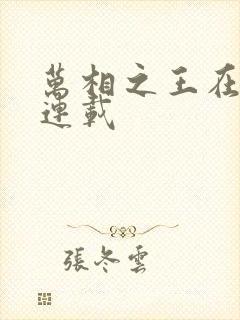 萬相之王在
連載
張冬雲